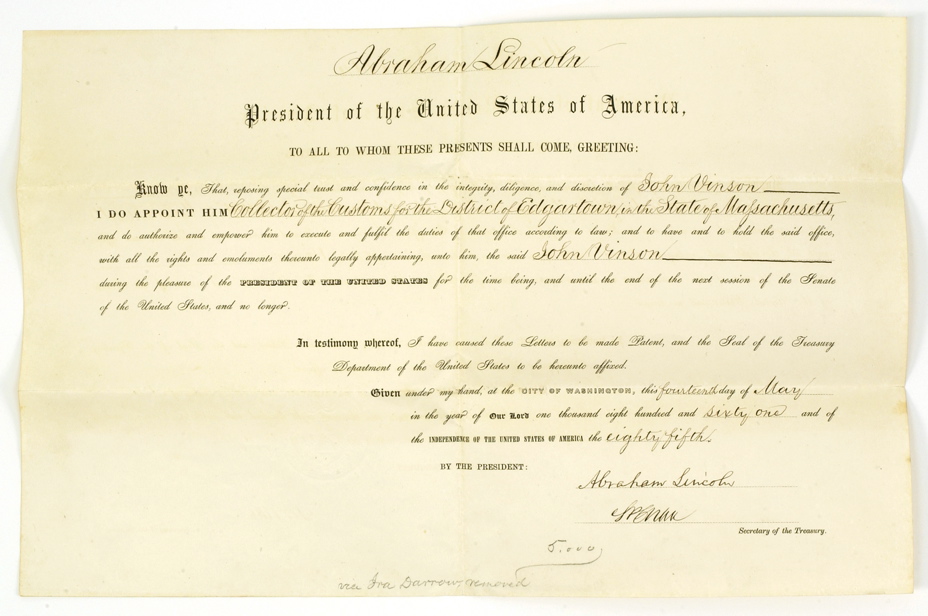 Abraham Lincoln
President of the United States of America,
TO ALL TO WHOM THESE PRESENTS SHALL COME, GREETING:
Know ye, That, reposing special trust and confidence in the integrity, diligence, and discretion of John Vinson
I DO APPOINT HIM Collector of the Customs for the District of Edgartown, in the State of Massachusetts,
and do authorize and empower him to execute and fulfil the duties of that office according to law; and to have and to hold the said office,
with all the rights and emoluments thereunto legally appertaining, unto him, the said John Vinson
during the pleasure of the PRESIDENT OF THE UNITED STATES for the time being, and until the end of the next session of the Senate
of the United States, and no longer.
In testimony whereof, I have caused these Letters to be made Patent, and the Seal of the Treasury
Department of the United States to be hereunto affixed.
Given under my hand, at the CITY OF WASHINGTON, this fourteenth day of May
in the year of Our Lord one thousand eight hundred and sixty one and of
the INDEPENDENCE OF THE UNITED STATES OF AMERICA the eighty fifth.
BY THE PRESIDENT:
Abraham Lincoln
S P Chase
Secretary of the Treasury.
5.000
vice Ira Darrow, removed